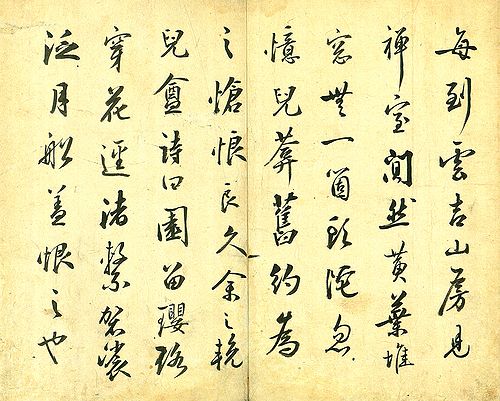 每到雲吉山房見
禅室闃然黄葉堆
窓無一箇頭陀忽
憶兒葬舊約為
之愴恨良久余之輓
兒會詩曰園留瓔珞
穿花逕渚繋袈裟
泛月船蓋恨之也